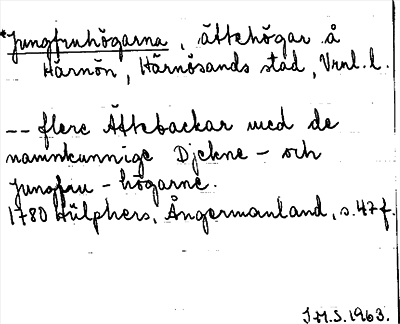 *Jungfruhögarna, ättehögar å
Härnön, Härnösands stad, Vrnl. l.
-- flere Ättebackar med de
namnkunnige Djekne- och
Jungfru-högarne.
1780 Hülphers, Ångermanland, s. 47 f.
J.H.S. 1963.